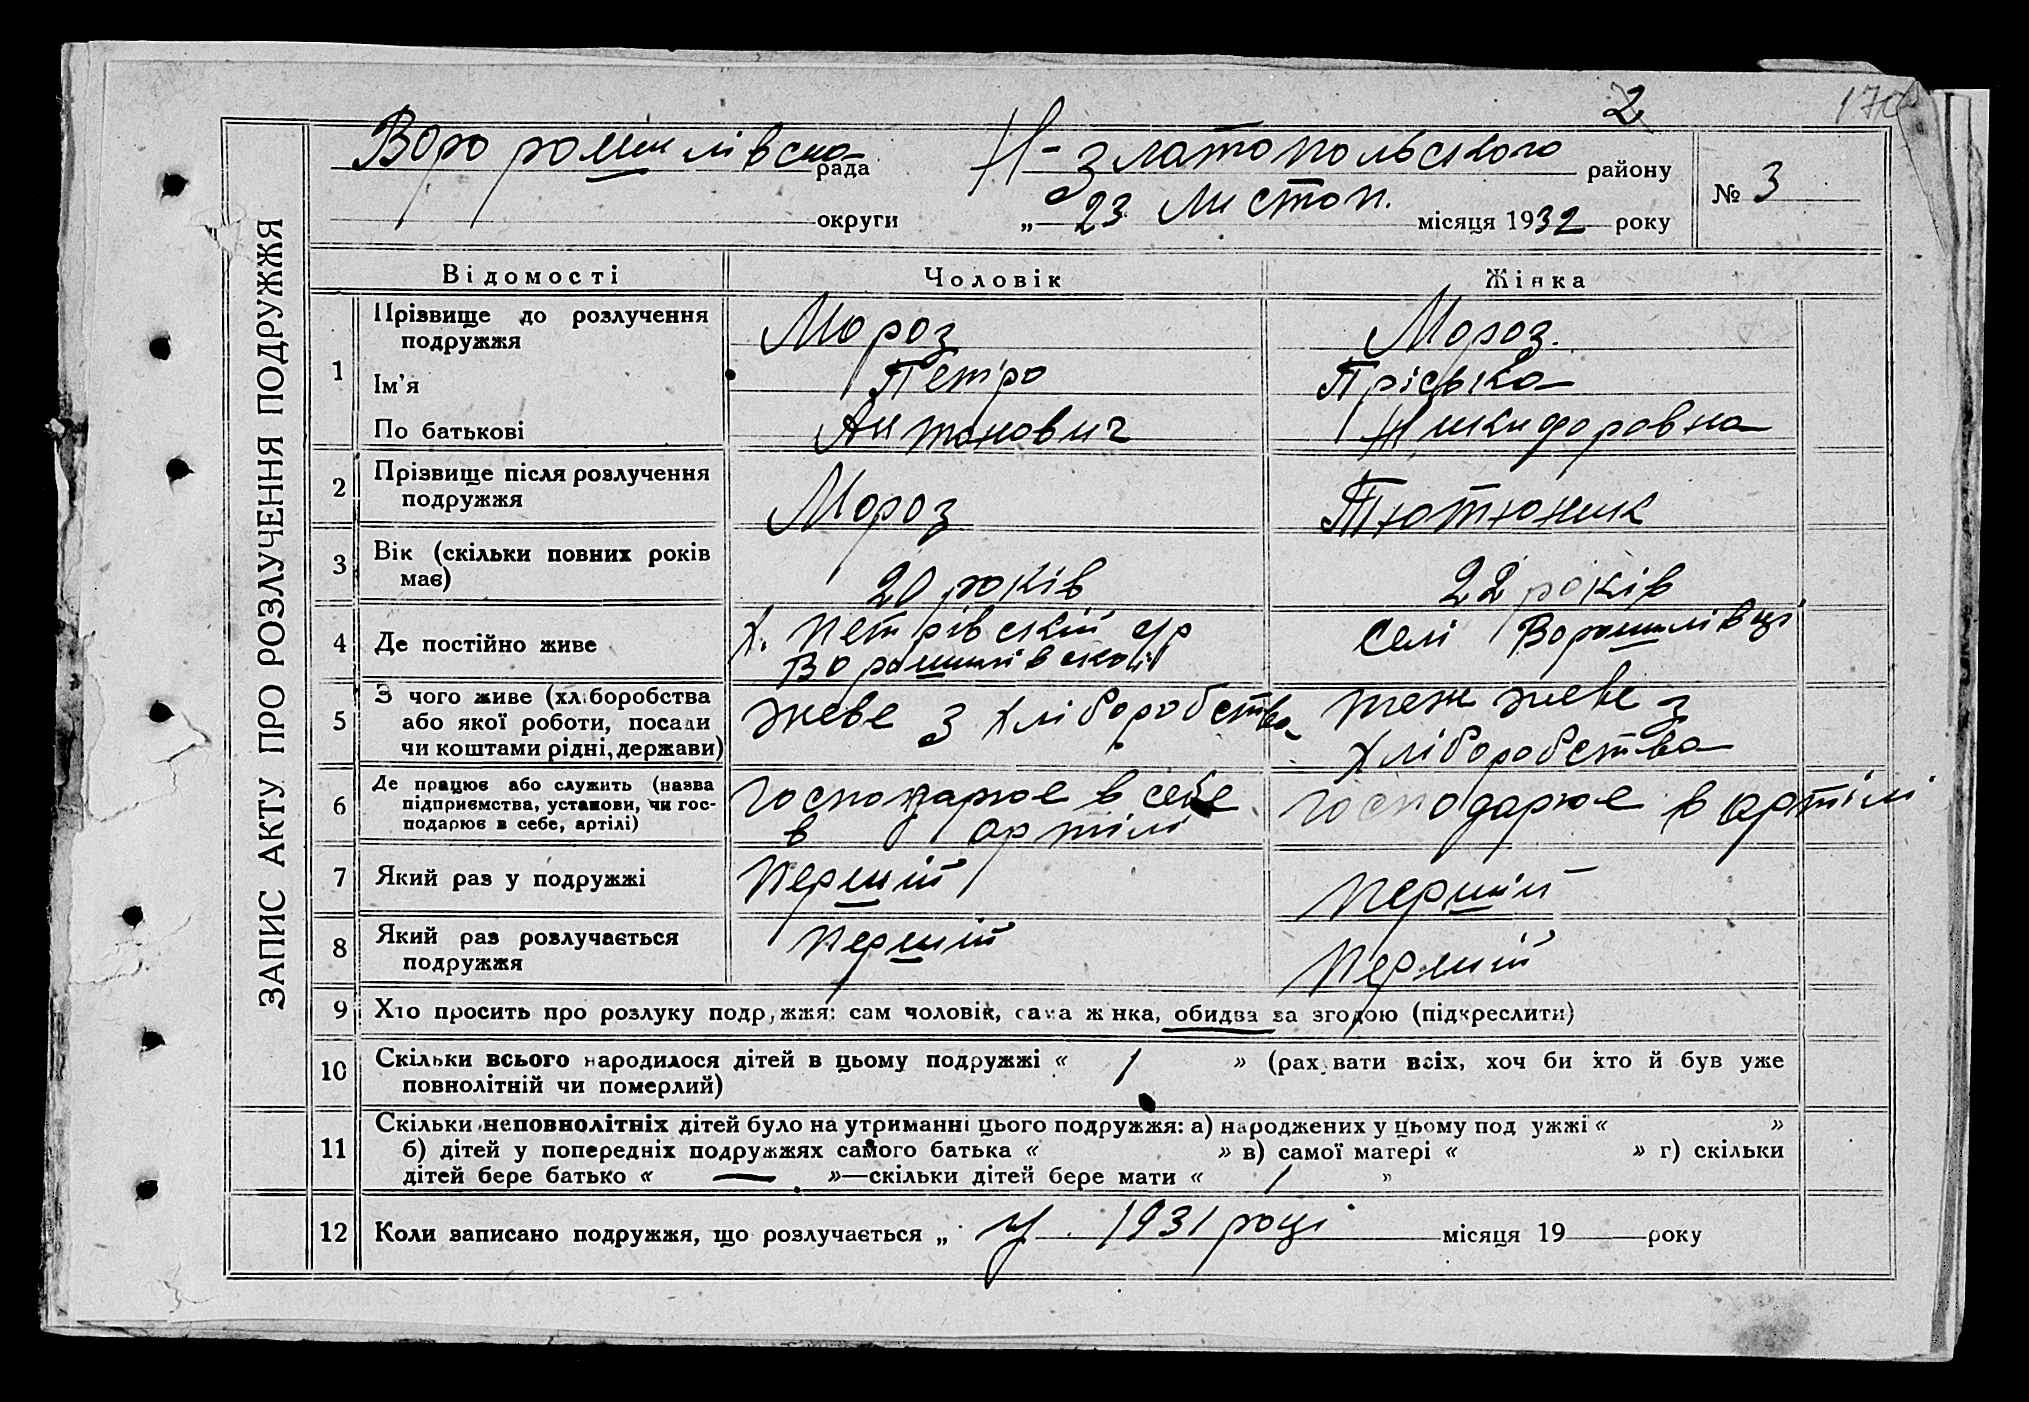 2
170
Ворошилівська рада Н-Златопольського району № 3
округи „ 23 листоп. місяця 1932 року
ЗАПИС АКТУ ПРО РОЗЛУЧЕННЯ ПОДРУЖЖЯ
Відомості Чоловік Жінка
1 Прізвище до розлучення подружжя Мороз Мороз.
Ім'я Петро Пріська
По батькові Антонович Никифоровна
2 Прізвище після розлучення подружжя Мороз Тютюник
3 Вік (скільки повних років має) 20 років 22 років
4 Де постійно живе х. Петрівский с/р Ворошилівской селі Ворошилівці
5 З чого живе (хліборобства або якої роботи, посади чи коштами рідні, держави) живе з хліборобства теж живе з хліборобства
6 Де працює або служить (назва підприємства, установи, чи господарює в себе, артілі) господарює в себе в артілі господарює в артілі
7 Який раз у подружжі перший перший
8 Який раз розлучається подружжя перший перший
9 Хто просить про розлуку подружжя: сам чоловік, сама жінка, обидва за згодою (підкреслити)
10 Скільки всього народилося дітей в цьому подружжі « 1 » (рахувати всіх, хоч би хто й був уже
повнолітній чи померлий)
11 Скільки неповнолітніх дітей було на утриманні цього подружжя: а) народжених у цьому подружжі « »
б) дітей у попередніх подружжях самого батька « » в) самої матері « » г) скільки
дітей бере батько « — »—скільки дітей бере мати « 1 »
12 Коли записано подружжя, що розлучається „ у 1931 році місяця 19 року